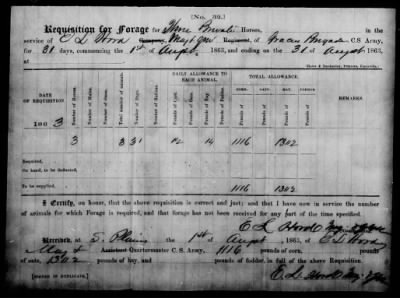 (No. 39.)
Requisition for Forage for Three Private Horses, in the
service of E L Hord Company, Maj & Qr Regiment, of Gracie Brigade C.S Army,
for 31 days, commencing the 1st of August, 1863, and ending on the 31 of August 1863,
at
DATE OF REQUISITION
Number of Horses.
Number of Mules.
Number of Oxen.
Total Number.
Number of Days.
Number of Rations.
DAILY ALLOWANCE TO EACH ANIMAL.
Pounds of Corn.
Pounds of Oats.
Pounds of Hay.
Pounds of Fodder.
TOTAL ALLOWANCE.
CORN.
OATS.
HAY.
FODDER.
REMARKS
Pounds.
Pounds.
Pounds.
Pounds.
186 3
3 3 31 12 14 1116 1302
Required,
On hand, to be deducted,
To be supplied, 1116 1302
I Certify, on honor, that the above requisition is correct and just; and that I have now in service the
number of animals for which Forage is required, and that forage has not been received for any part of the time specified.
E L Hord Maj & Qm
Received, at S. Plains the 1st of August, 1863, of E L Hord
Maj & Assistant Quartermaster C. S. Army, 1116 pounds of corn, pounds
of oats, 1302 pounds of hay, and pounds of fodder, in full of the above Requisition.
[SIGNED IN DUPLICATE.] E L Hord Maj & Qm